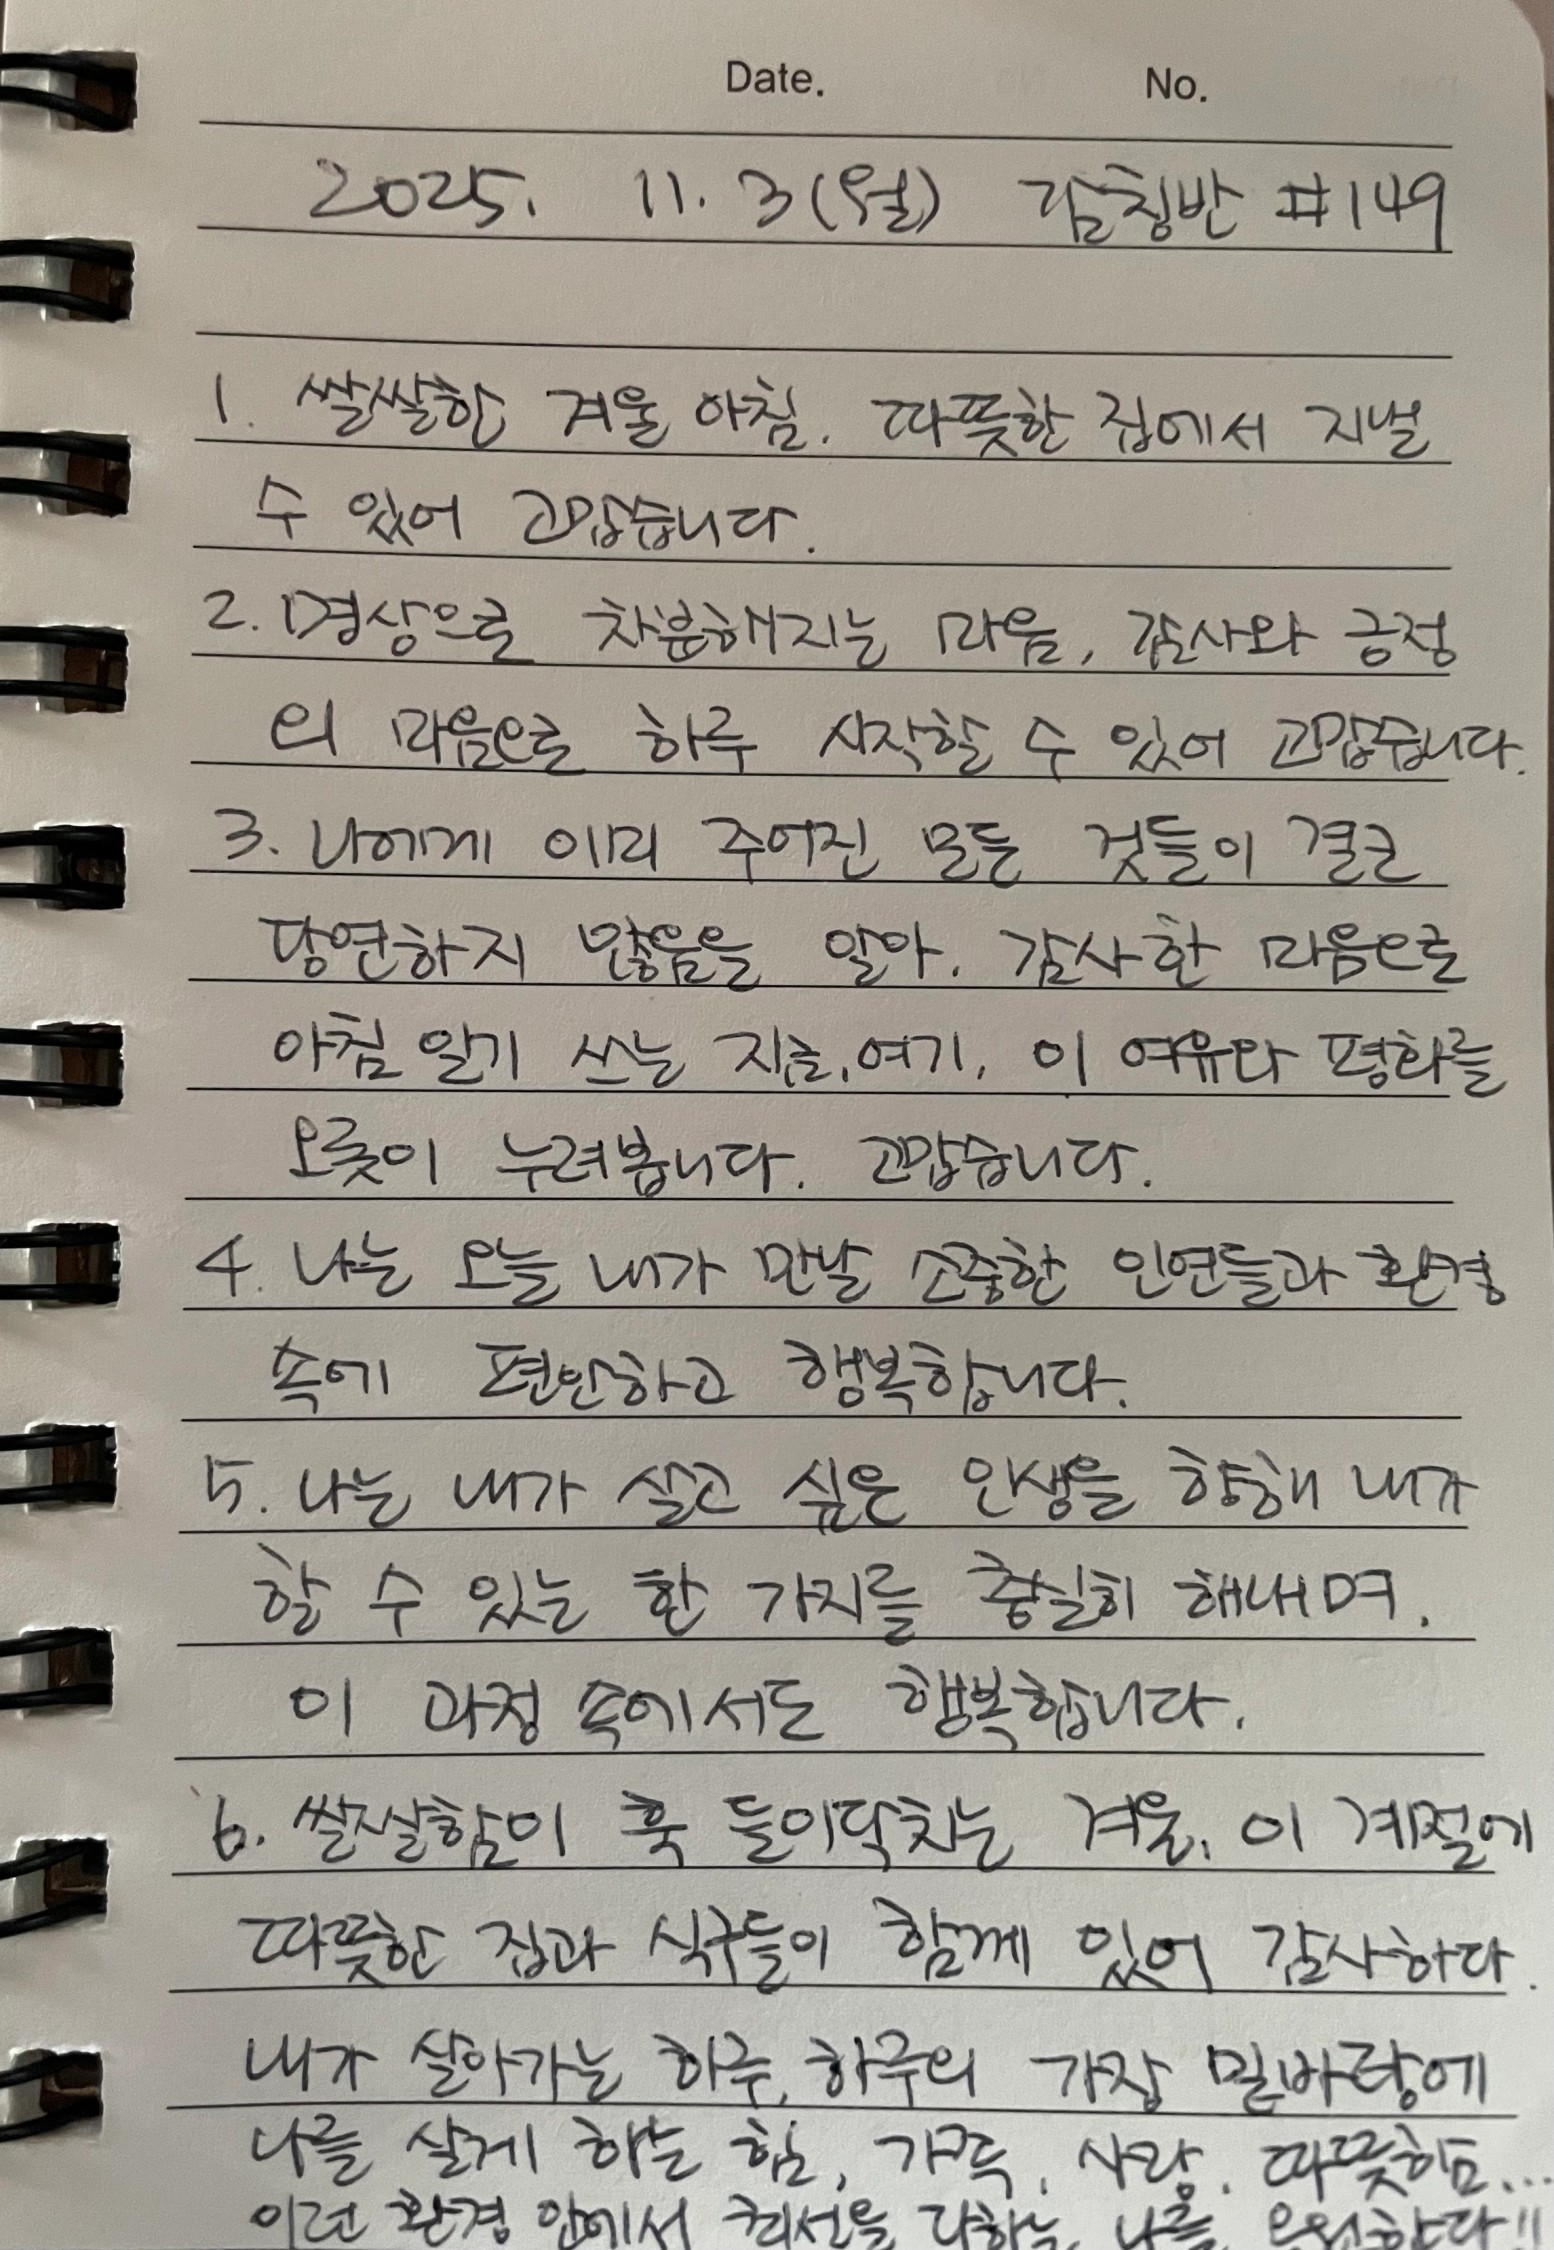 Date. No.
2025. 11. 3(월) 감칭반 #149
1. 쌀쌀한 겨울 아침. 따뜻한 집에서 지낼
수 있어 고맙습니다.
2. 명상으로 차분해지는 마음, 감사와 긍정
의 마음으로 하루 시작할 수 있어 고맙습니다.
3. 나에게 이미 주어진 모든 것들이 결코
당연하지 않음을 알아. 감사한 마음으로
아침 일기 쓰는 지금, 여기, 이 여유와 평화를
오롯이 누려봅니다. 고맙습니다.
4. 나는 오늘 내가 만날 소중한 인연들과 환경
속에 편안하고 행복합니다.
5. 나는 내가 살고 싶은 인생을 향해 내가
할 수 있는 한 가지를 충실히 해내며.
이 과정 속에서도 행복합니다.
6. 쌀쌀함이 훅 들이닥치는 겨울, 이 계절에
따뜻한 집과 식구들이 함께 있어 감사하다.
내가 살아가는 하루, 하루의 가장 밑바탕에
나를 살게 하는 힘, 가족, 사랑, 따뜻함...
이런 환경 안에서 최선을 다하는 나를 응원한다!!